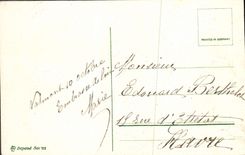 PRINTED IN GERMANY
Valmont 10 octobre
Embrasse de loin
Marie
Monsieur
Edouard Berthelot
18 rue d'Etretat
Havre